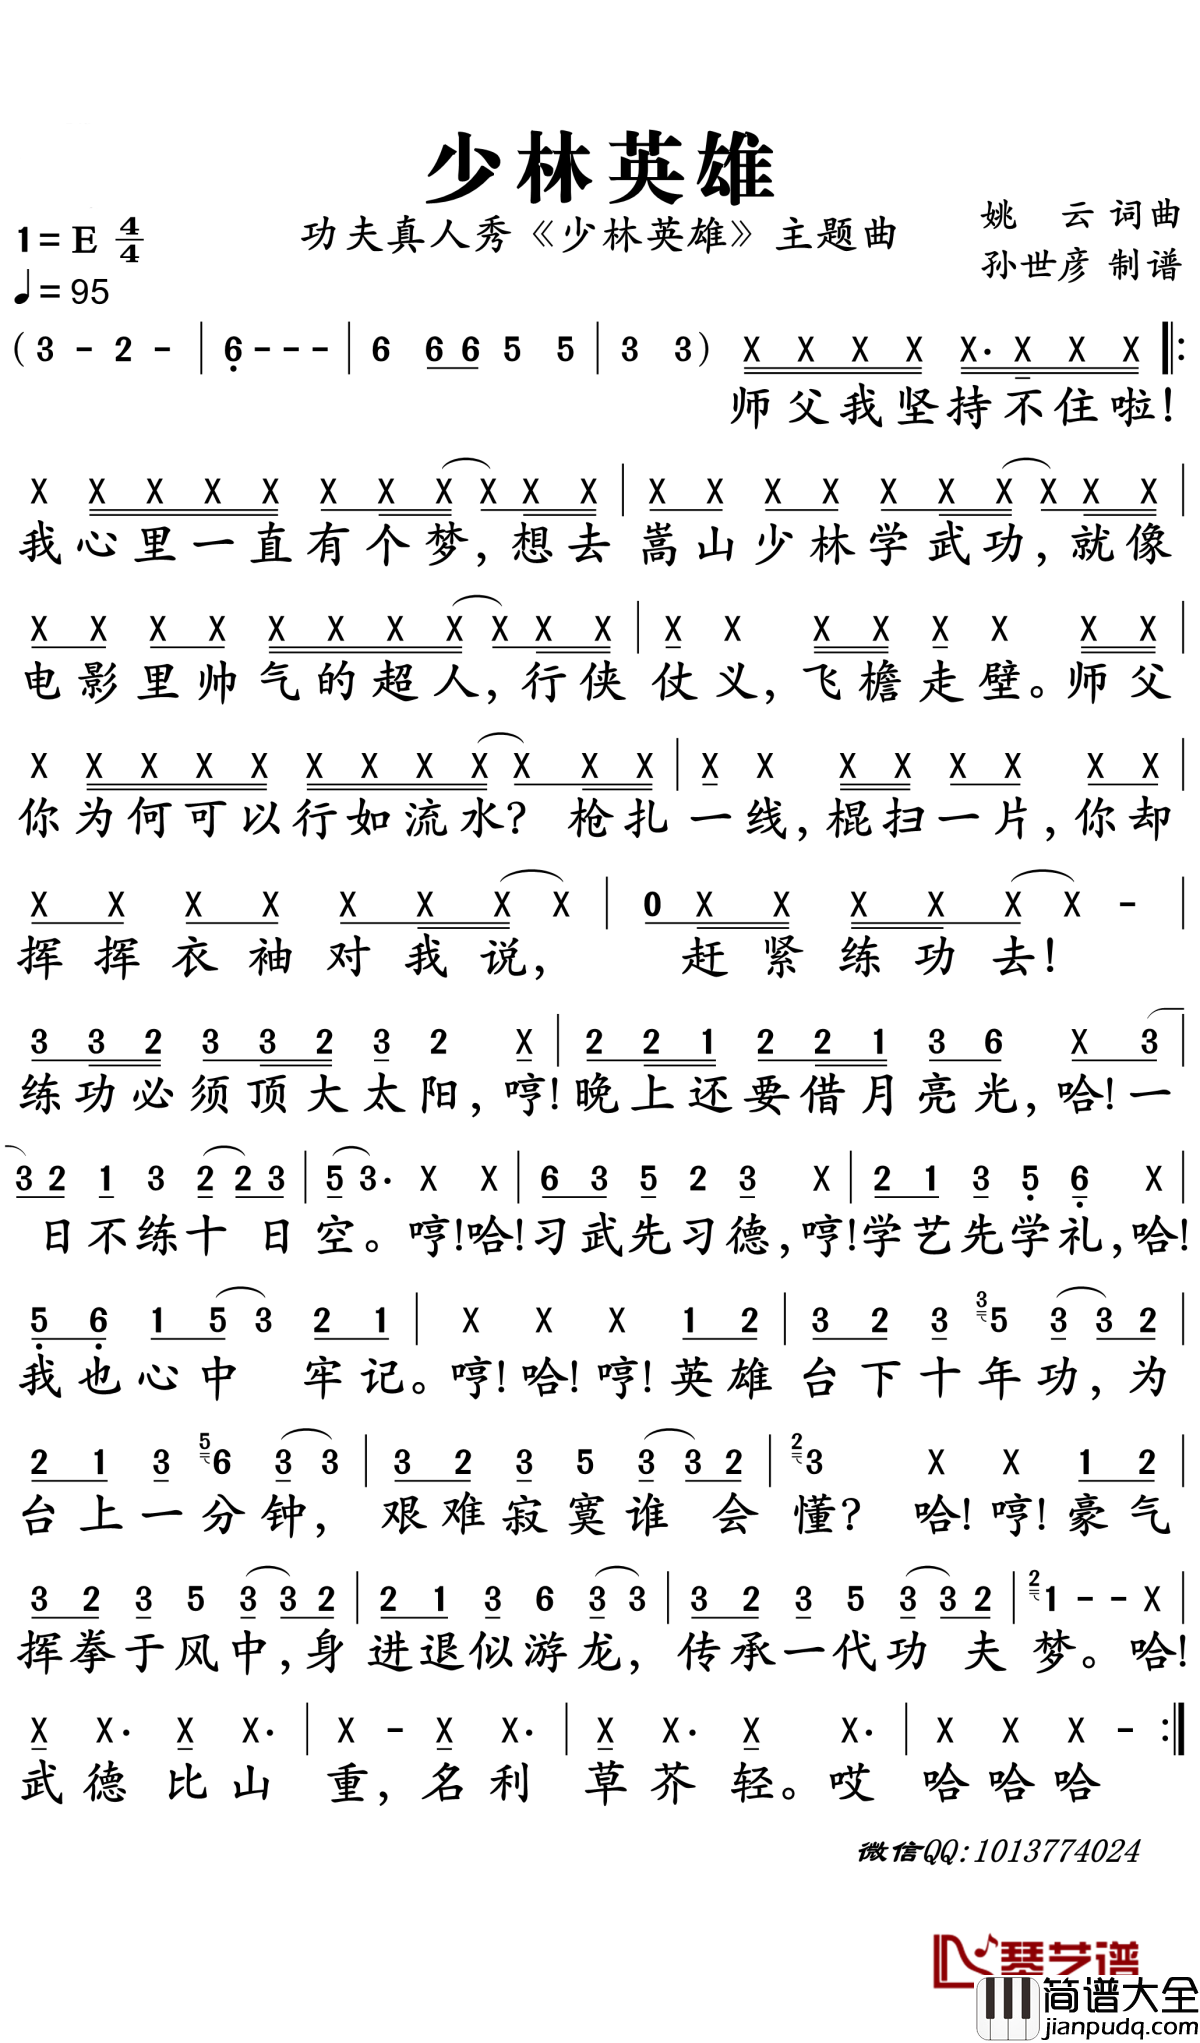 少林英雄
功夫真人秀《少林英雄》主题曲
姚 云 词曲
孙世彦 制谱
1=E 4/4
♩=95
(3 - 2 - | 6 - - - | 6 6 6 5 5 | 3 3) X X X X X. X X X |:
师父我坚持不住啦!
X X X X X X X X X X X | X X X X X X X X X X |
我心里一直有个梦,想去嵩山少林学武功,就像
X X X X X X X X X X X | X X X X X X X X |
电影里帅气的超人,行侠仗义,飞檐走壁。师父
X X X X X X X X X X X X | X X X X X X X X |
你为何可以行如流水?枪扎一线,棍扫一片,你却
X X X X X X X X | 0 X X X X X X - |
挥挥衣袖对我说,赶紧练功去!
3 3 2 3 3 2 3 2 X | 2 2 1 2 2 1 3 6 X 3 |
练功必须顶大太阳,哼!晚上还要借月亮光,哈!一
3 2 1 3 2 2 3 | 5 3. X X | 6 3 5 2 3 X | 2 1 3 5 6 X |
日不练十日空。哼!哈!习武先习德,哼!学艺先学礼,哈!
5 6 1 5 3 2 1 | X X X 1 2 | 3 2 3 3 5 3 3 2 |
我也心中牢记。哼!哈!哼!英雄台下十年功,为
2 1 3 5 6 3 3 | 3 2 3 5 3 3 2 | 2 3 X X 1 2 |
台上一分钟,艰难寂寞谁会懂?哈!哼!豪气
3 2 3 5 3 3 2 | 2 1 3 6 3 3 | 3 2 3 5 3 3 2 | 2 1 - - X |
挥拳于风中,身进退似游龙,传承一代功夫梦。哈!
X X. X X. | X - X X. | X X. X X. | X X X - :|
武德比山重,名利草芥轻。哎哈哈哈
微信QQ:1013774024
琴艺谱
简谱大全
jianpudq.com